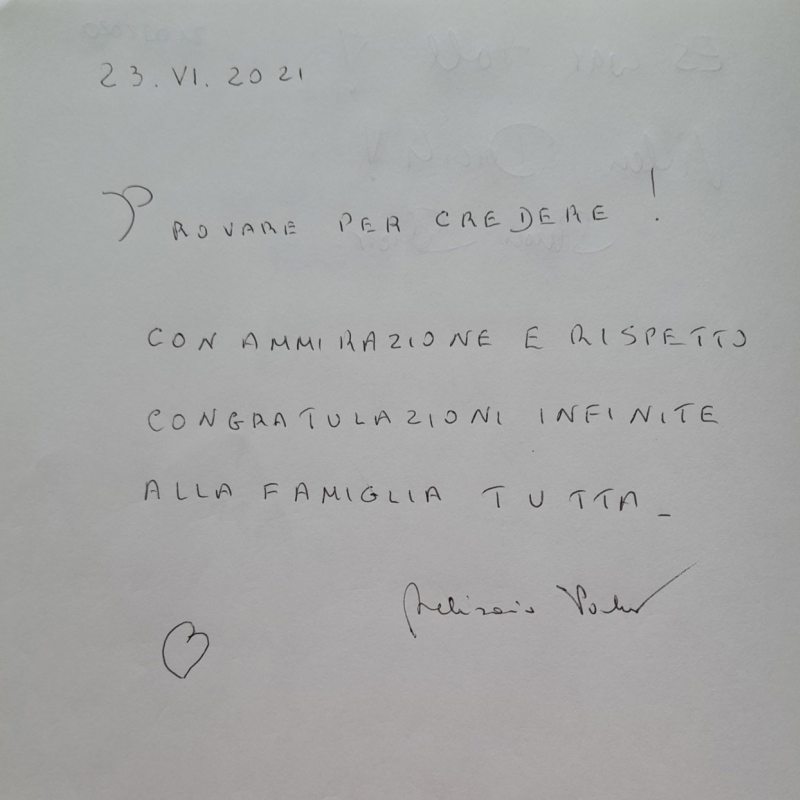 23.VI.2021
PROVARE PER CREDERE!
CON AMMIRAZIONE E RISPETTO
CONGRATULAZIONI INFINITE
ALLA FAMIGLIA TUTTA_